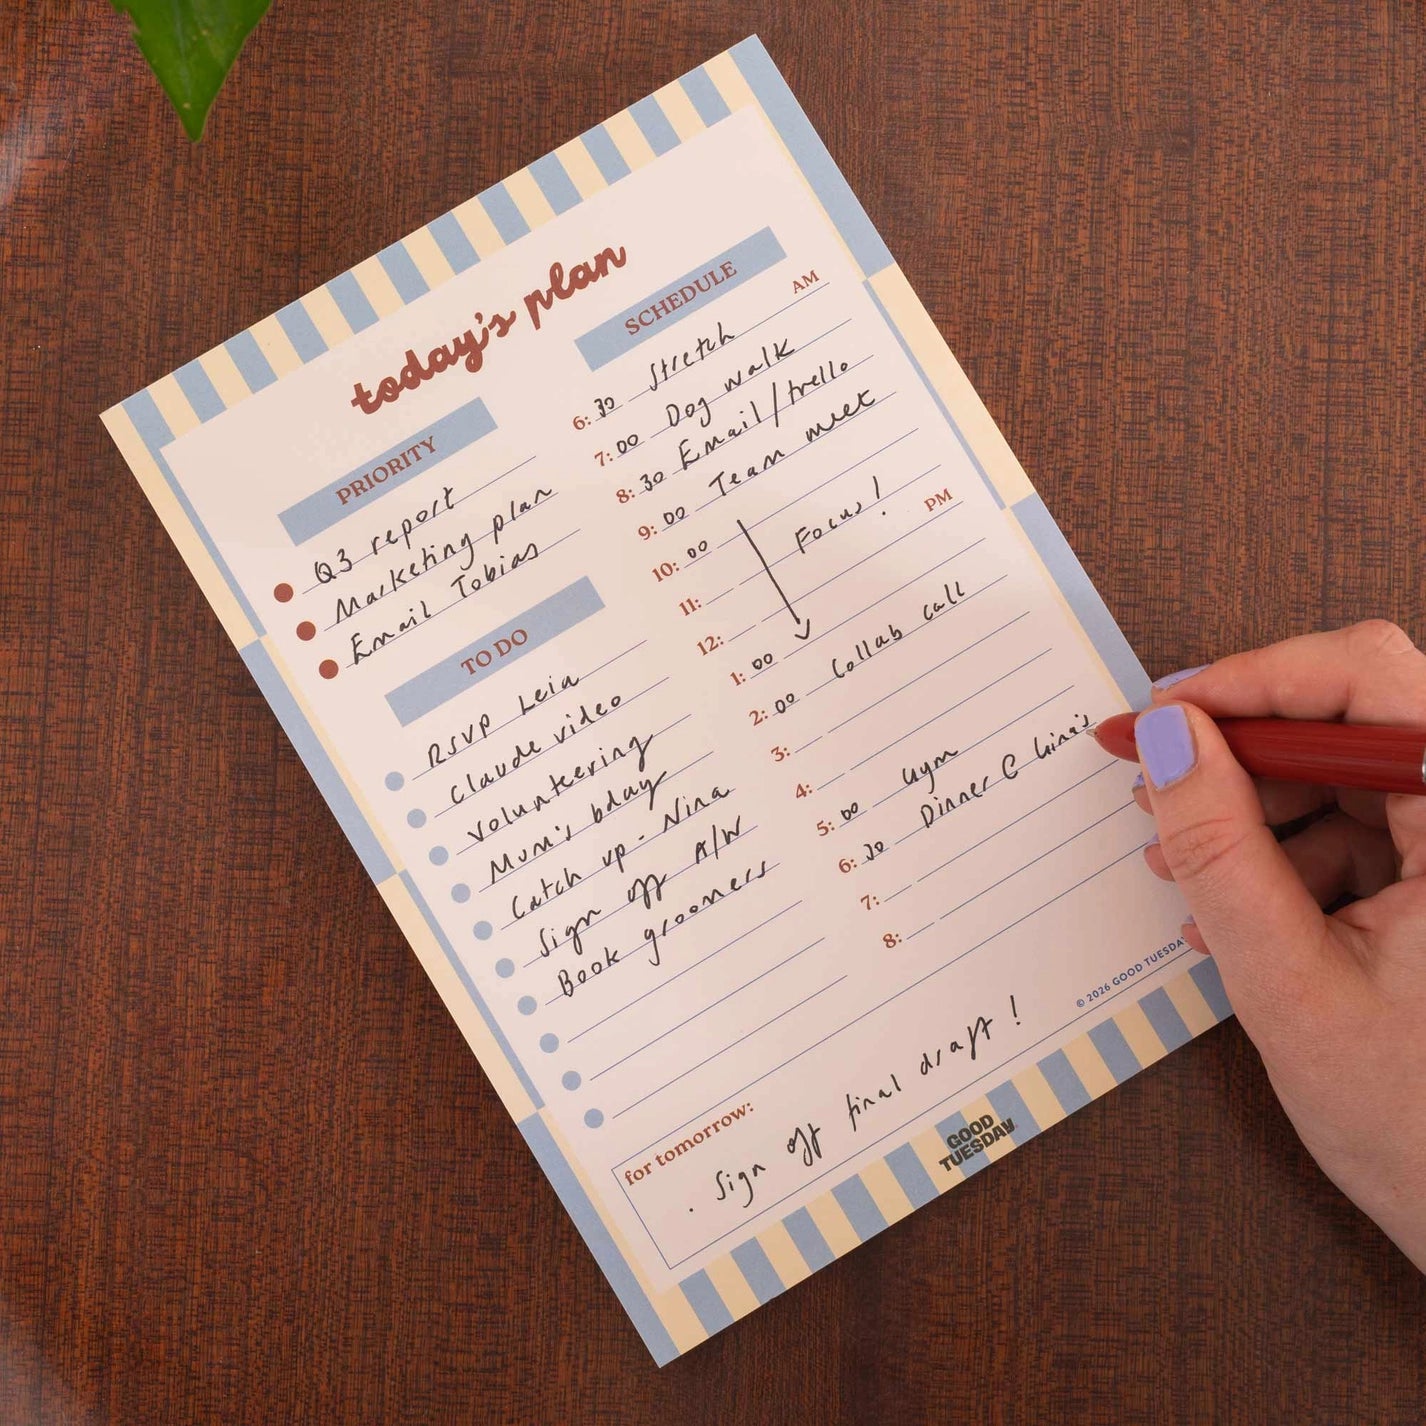 today's plan
PRIORITY
Q3 report
Marketing plan
Email Tobias
TO DO
RSVP Leia
Claude video
Volunteering
Mum's bday
Catch up - Nina
Sign off A/W
Book groomers
SCHEDULE
AM
6:30 Stretch
7:00 Dog walk
8:30 Email/trello
9:00 Team meet
10:00
Focus!
11:
PM
12:
1:00
2:00 Collab call
3:
4:
5:00 Gym
6:30 Dinner @ Gina's
7:
8:
© 2026 GOOD TUESDAY
for tomorrow:
. Sign off final draft!
GOOD
TUESDAY